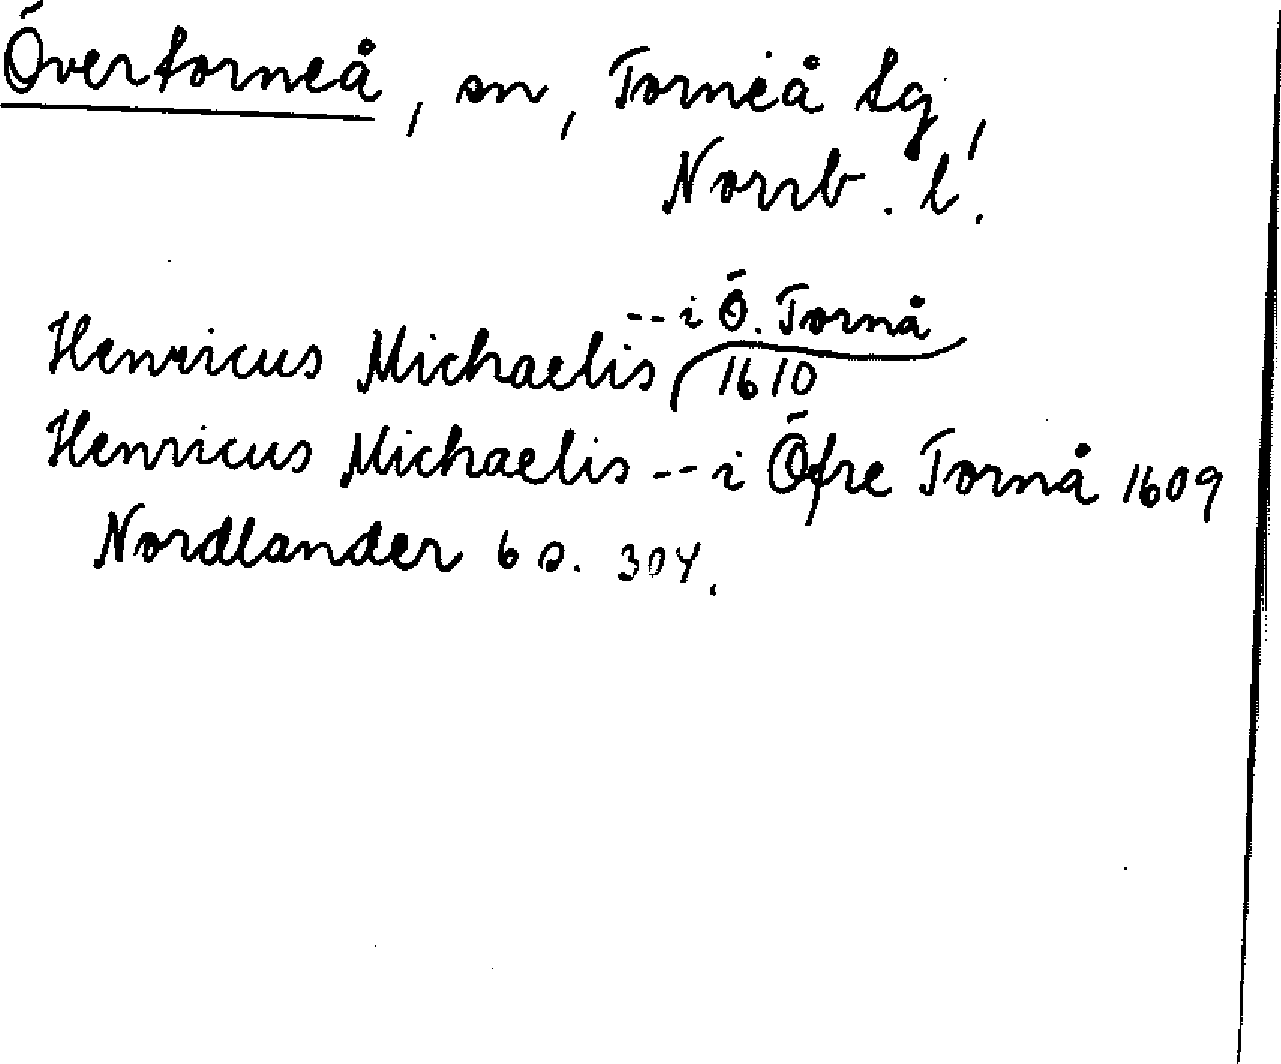 Övertorneå, sn, Torneå tg,
Norrb. l.
Henricus Michaelis -- i Ö. Tornå
1610
Henricus Michaelis -- i Öfre Tornå 1609
Nordlander 6 s. 304.